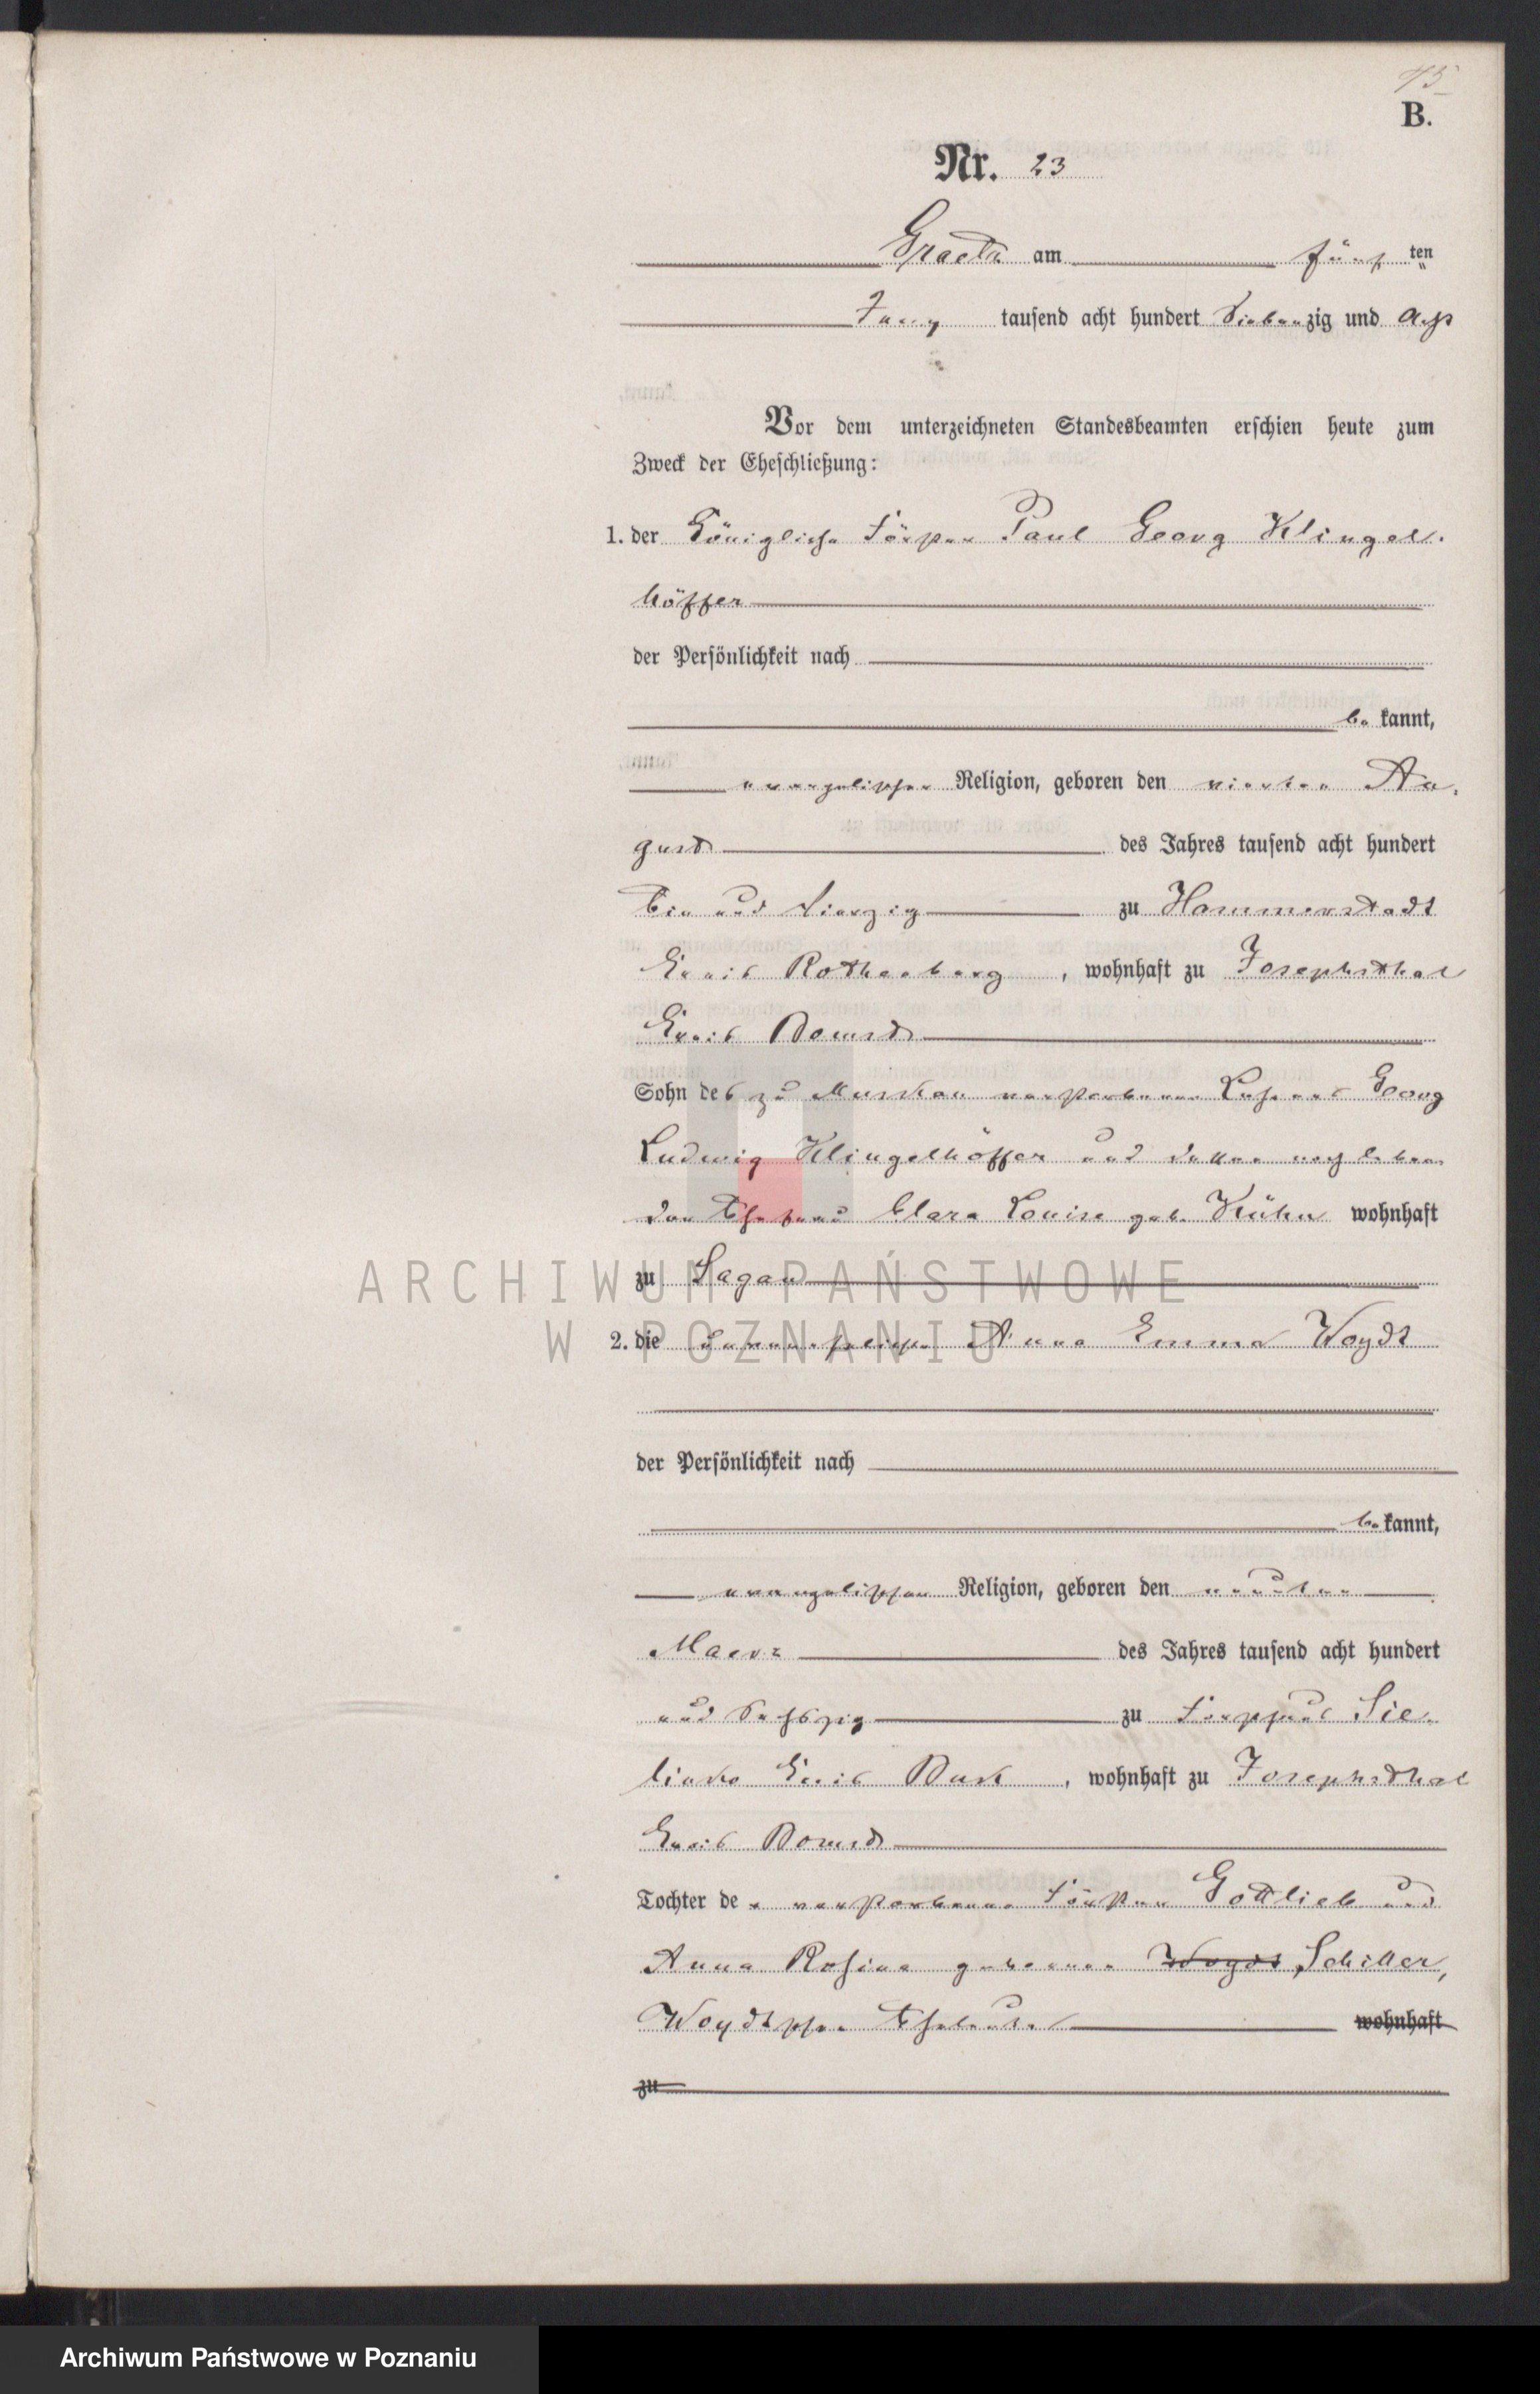 75
B.
Nr. 23
Graetz am fünf ten
Juny tausend acht hundert Siebenzig und acht
Vor dem unterzeichneten Standesbeamten erschien heute zum
Zweck der Eheschließung:
1. der Königliche Förster Paul Georg Klingel-
höffer
der Persönlichkeit nach
be kannt,
evangelischer Religion, geboren den vierten Au-
gust des Jahres tausend acht hundert
Ein und Vierzig zu Hammerstadt
Kreis Rothenberg, wohnhaft zu Josephsthal
Kreis Bomst
Sohn des zu Muskau verstorbenen Georg
Ludwig Klingelhöffer und dessen noch leben-
den Ehefrau Clara Louise geb. Kühn wohnhaft
zu Sagan
2. die Anna Emma Woydt
der Persönlichkeit nach
be kannt,
evangelischer Religion, geboren den neunten
Maerz des Jahres tausend acht hundert
und Sechszig zu Forsthaus Sie-
linko Kreis Buk, wohnhaft zu Josephsthal
Kreis Bomst
Tochter der verstorbenen Förster Gottlieb und
Anna Rosina geborene Woydt Schiller,
Woydtschen Eheleute wohnhaft
zu
ARCHIWUM PAŃSTWOWE
W POZNANIU
Archiwum Państwowe w Poznaniu